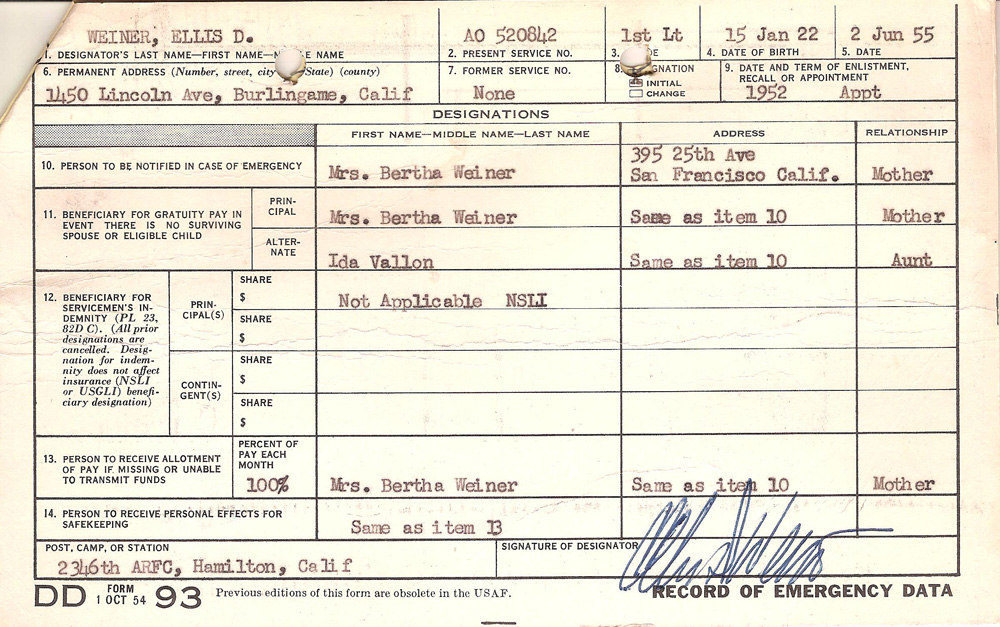 WEINER, ELLIS D. AO 520842 1st Lt 15 Jan 22 2 Jun 55
1. DESIGNATOR'S LAST NAME—FIRST NAME— NAME 2. PRESENT SERVICE NO. 3. 4. DATE OF BIRTH 5. DATE
6. PERMANENT ADDRESS (Number, street, city State) (county) 7. FORMER SERVICE NO. 8. 9. DATE AND TERM OF ENLISTMENT,
RECALL OR APPOINTMENT
INITIAL
CHANGE
1450 Lincoln Ave, Burlingame, Calif None 1952 Appt
DESIGNATIONS
FIRST NAME—MIDDLE NAME—LAST NAME ADDRESS RELATIONSHIP
10. PERSON TO BE NOTIFIED IN CASE OF EMERGENCY
Mrs. Bertha Weiner
395 25th Ave
San Francisco Calif.
Mother
11. BENEFICIARY FOR GRATUITY PAY IN
EVENT THERE IS NO SURVIVING
SPOUSE OR ELIGIBLE CHILD
PRIN-
CIPAL
Mrs. Bertha Weiner Same as item 10 Mother
ALTER-
NATE
Ida Vallon Same as item 10 Aunt
12. BENEFICIARY FOR
SERVICEMEN'S IN-
DEMNITY (PL 23,
82D C). (All prior
designations are
cancelled. Desig-
nation for indem-
nity does not affect
insurance (NSLI
or USGLI) benefi-
ciary designation)
PRIN-
CIPAL(S)
SHARE
$
Not Applicable NSLI
SHARE
$
CONTIN-
GENT(S)
SHARE
$
SHARE
$
13. PERSON TO RECEIVE ALLOTMENT
OF PAY IF MISSING OR UNABLE
TO TRANSMIT FUNDS
PERCENT OF
PAY EACH
MONTH
100%
Mrs. Bertha Weiner Same as item 10 Mother
14. PERSON TO RECEIVE PERSONAL EFFECTS FOR
SAFEKEEPING
Same as item 13
POST, CAMP, OR STATION
2346th ARFC, Hamilton, Calif
SIGNATURE OF DESIGNATOR
DD FORM 93
1 OCT 54
Previous editions of this form are obsolete in the USAF.
RECORD OF EMERGENCY DATA